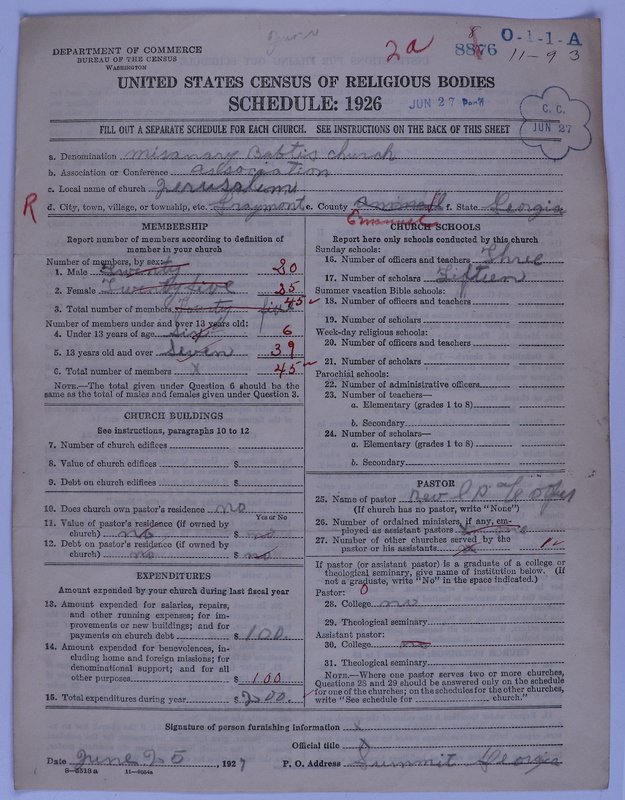 2a
8876
O-1-1-A
11-93
DEPARTMENT OF COMMERCE
BUREAU OF THE CENSUS
WASHINGTON
UNITED STATES CENSUS OF RELIGIOUS BODIES
SCHEDULE: 1926
JUN 27
C. C.
JUN 27
FILL OUT A SEPARATE SCHEDULE FOR EACH CHURCH. SEE INSTRUCTIONS ON THE BACK OF THIS SHEET
a. Denomination misanary Babtis church
b. Association or Conference association
c. Local name of church Jerusalem
R
d. City, town, village, or township, etc. Graymont e. County Emanuel f. State Georgia
MEMBERSHIP
Report number of members according to definition of
member in your church
Number of members, by sex:
1. Male Twenty 20
2. Female Twenty five 25
3. Total number of members Fourty five 45
Number of members under and over 13 years old:
4. Under 13 years of age Six 6
5. 13 years old and over Seven 39
6. Total number of members X 45
NOTE.—The total given under Question 6 should be the
same as the total of males and females given under Question 3.
CHURCH BUILDINGS
See instructions, paragraphs 10 to 12
7. Number of church edifices
8. Value of church edifices $
9. Debt on church edifices $
10. Does church own pastor's residence no
Yes or No
11. Value of pastor's residence (if owned by
church) no $ no
12. Debt on pastor's residence (if owned by
church) no $ no
EXPENDITURES
Amount expended by your church during last fiscal year
13. Amount expended for salaries, repairs,
and other running expenses; for im-
provements or new buildings; and for
payments on church debt $ 100.
14. Amount expended for benevolences, in-
cluding home and foreign missions; for
denominational support; and for all
other purposes $ 100
15. Total expenditures during year $ 200.
CHURCH SCHOOLS
Report here only schools conducted by this church
Sunday schools:
16. Number of officers and teachers Three
17. Number of scholars Fifteen
Summer vacation Bible schools:
18. Number of officers and teachers
19. Number of scholars
Week-day religious schools:
20. Number of officers and teachers
21. Number of scholars
Parochial schools:
22. Number of administrative officers
23. Number of teachers—
a. Elementary (grades 1 to 8)
b. Secondary
24. Number of scholars—
a. Elementary (grades 1 to 8)
b. Secondary
PASTOR
25. Name of pastor Rev
(If church has no pastor, write "None")
26. Number of ordained ministers, if any, em-
ployed as assistant pastors
27. Number of other churches served by the
pastor or his assistants
If pastor (or assistant pastor) is a graduate of a college or
theological seminary, give name of institution below. (If
not a graduate, write "No" in the space indicated.)
Pastor: 0
28. College no
29. Theological seminary
Assistant pastor:
30. College no
31. Theological seminary
NOTE.—Where one pastor serves two or more churches,
Questions 28 and 29 should be answered only on the schedule
for one of the churches; on the schedules for the other churches,
write "See schedule for church."
Signature of person furnishing information x
Official title
Date June 25, 1927 P. O. Address Summit Georgia
8—2513a 11—9064a